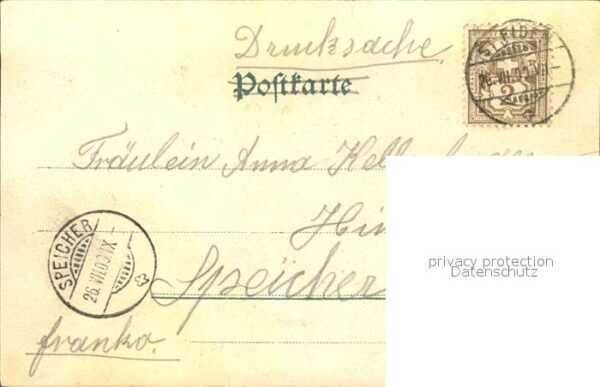 Drucksache.
Postkarte
2
Fräulein Anna
SPEICHER
26.VIII.00.IX
Speicher
franko.
privacy protection
Datenschutz